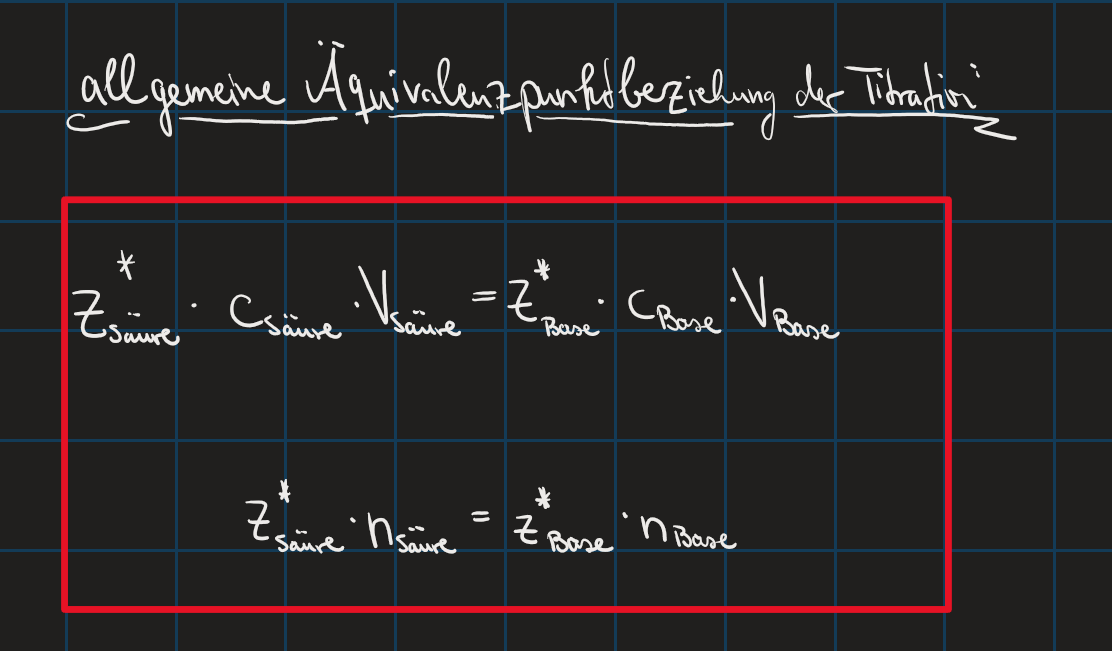 allgemeine Äquivalenzpunktbeziehung der Titration
z*Säure · cSäure · VSäure = z*Base · cBase · VBase
z*Säure · nSäure = z*Base · nBase